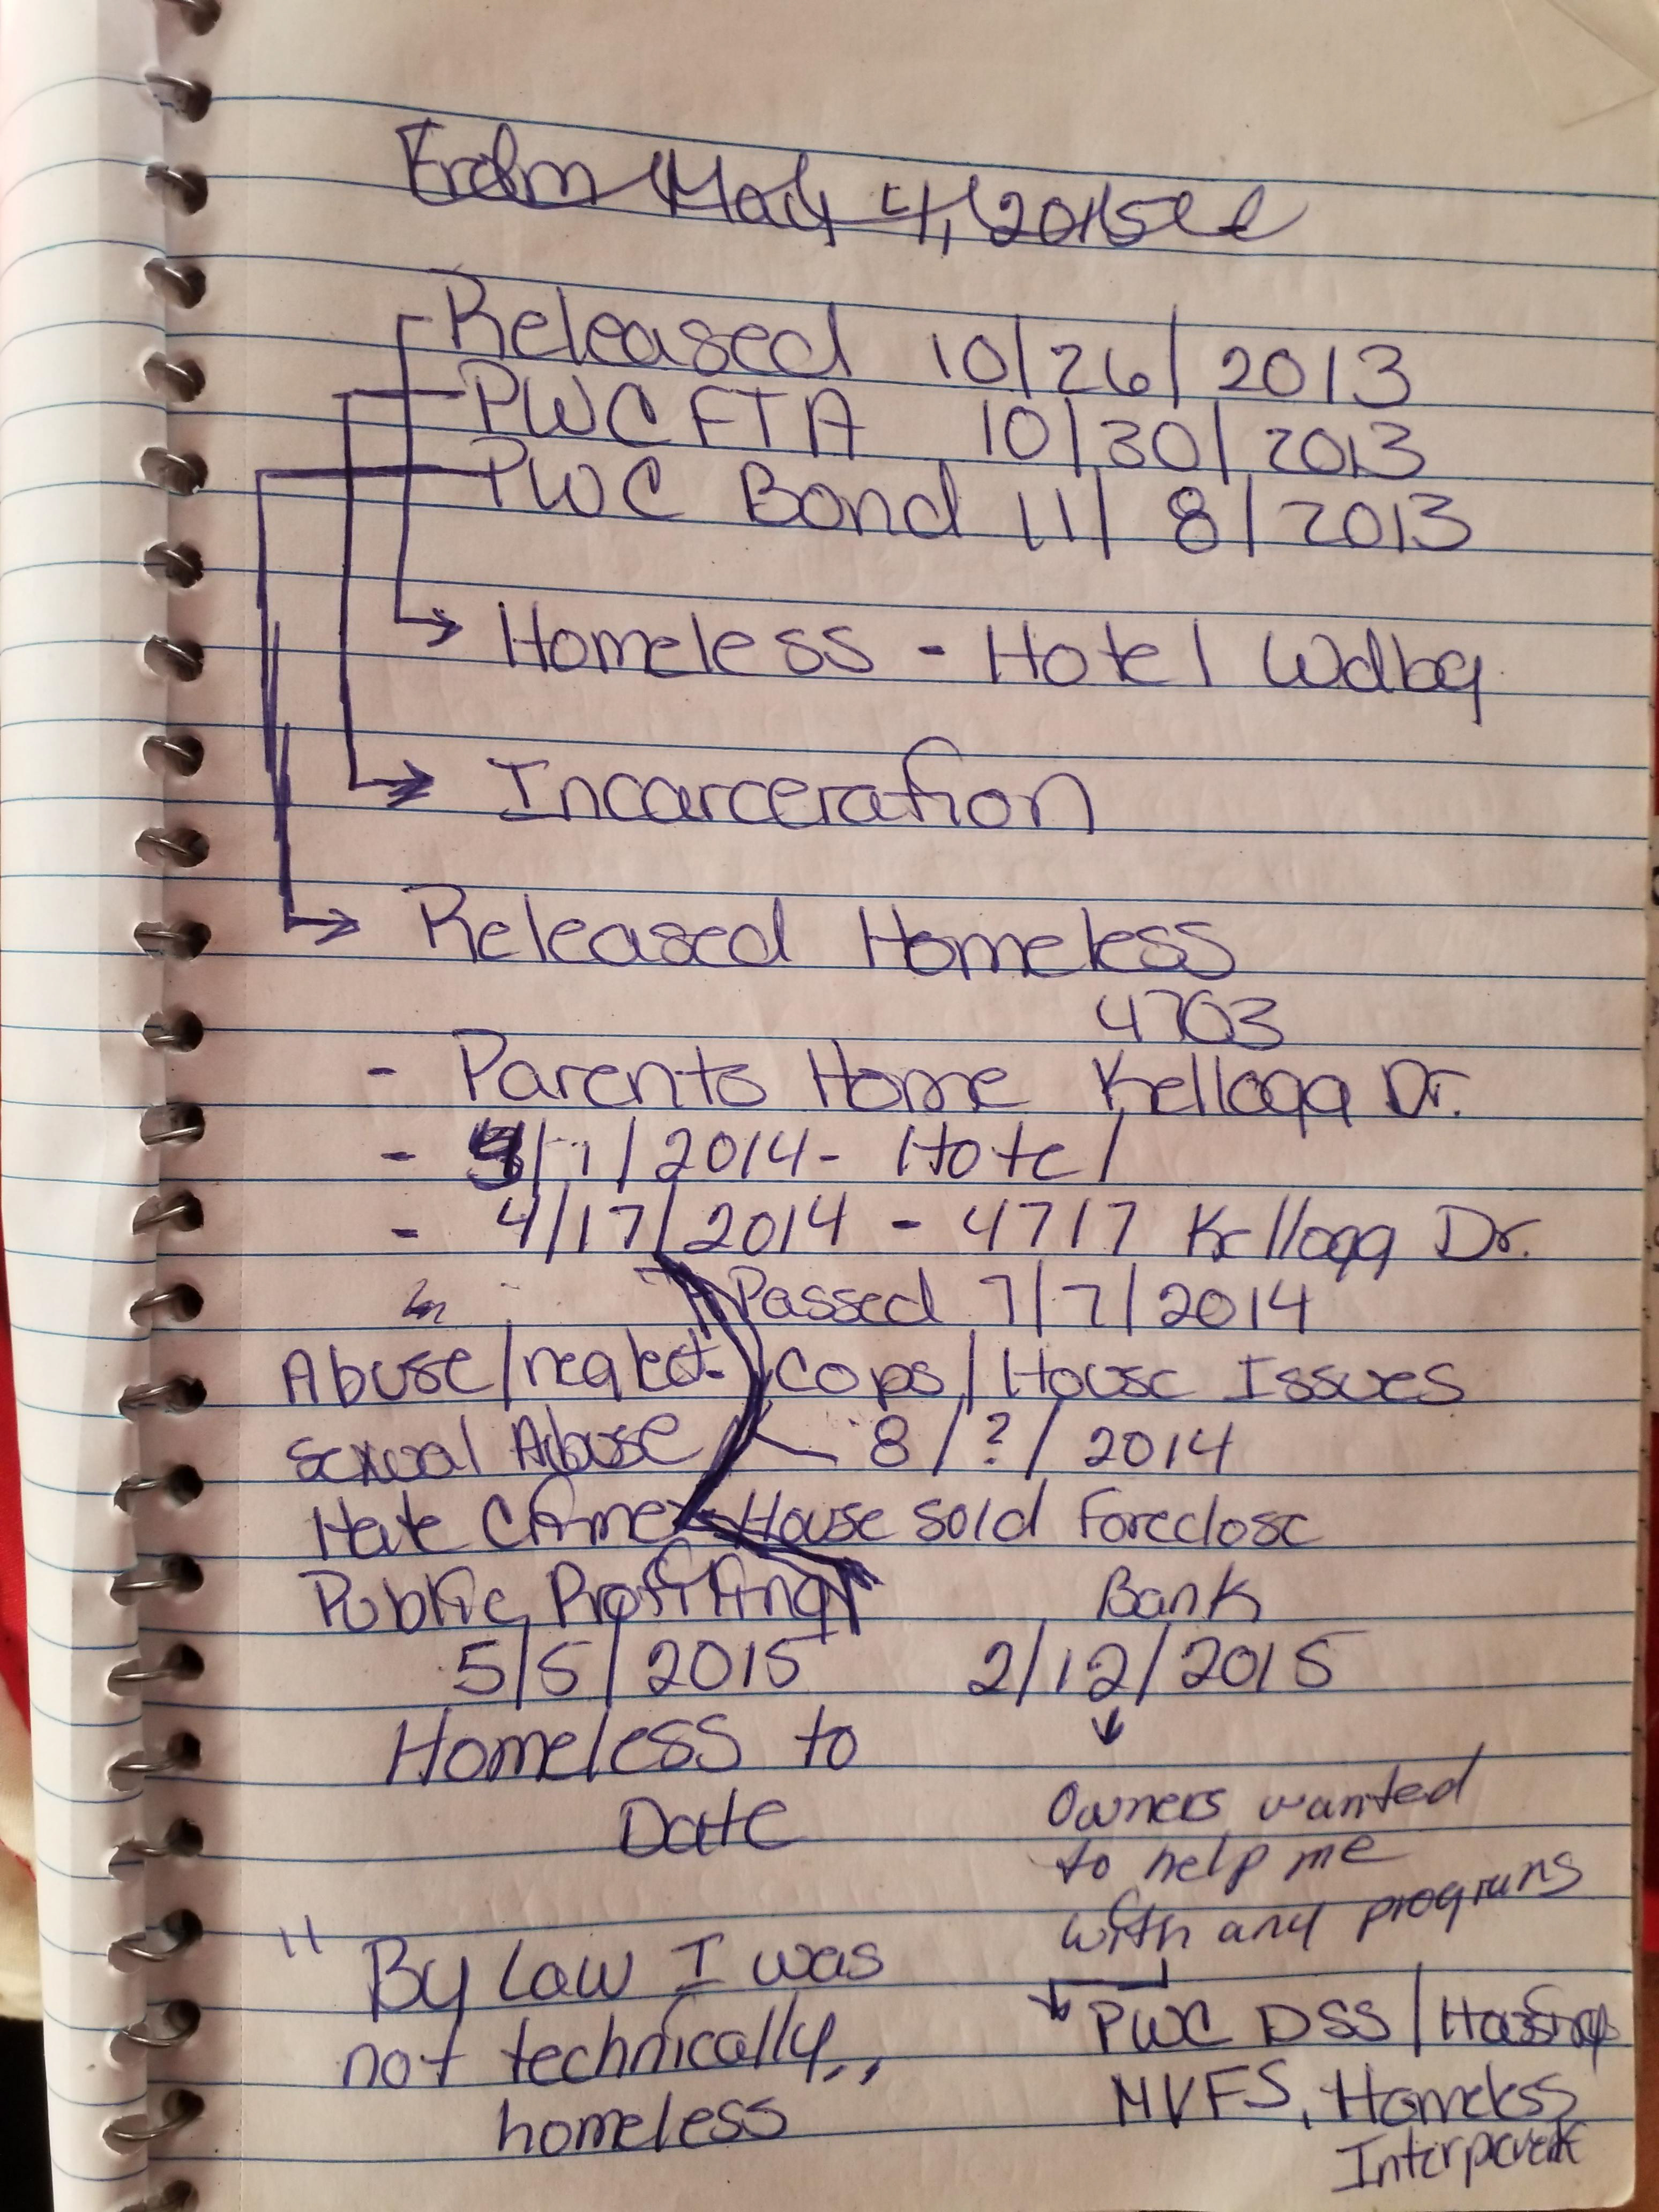 From May 4, 2015
Released 10/26/2013
PWC FTA 10/30/2013
PWC Bond 11/8/2013
Homeless - Hotel Wdbg
Incarceration
Released Homeless
4703
- Parents Home Kellogg Dr.
- /1/2014 - Hotel
- 4/17/2014 - 4717 Kellogg Dr.
Passed 7/7/2014
Abuse/neglect Cops/House Issues
Sexual Abuse 8/?/2014
Hate Crime House sold Foreclose
Public Bank
5/5/2015 2/12/2015
Homeless to
Date
Owners wanted
to help me
with any programs
"By Law I was
not technically,,
homeless
PWC DSS/Housing
NVFS, Homeless